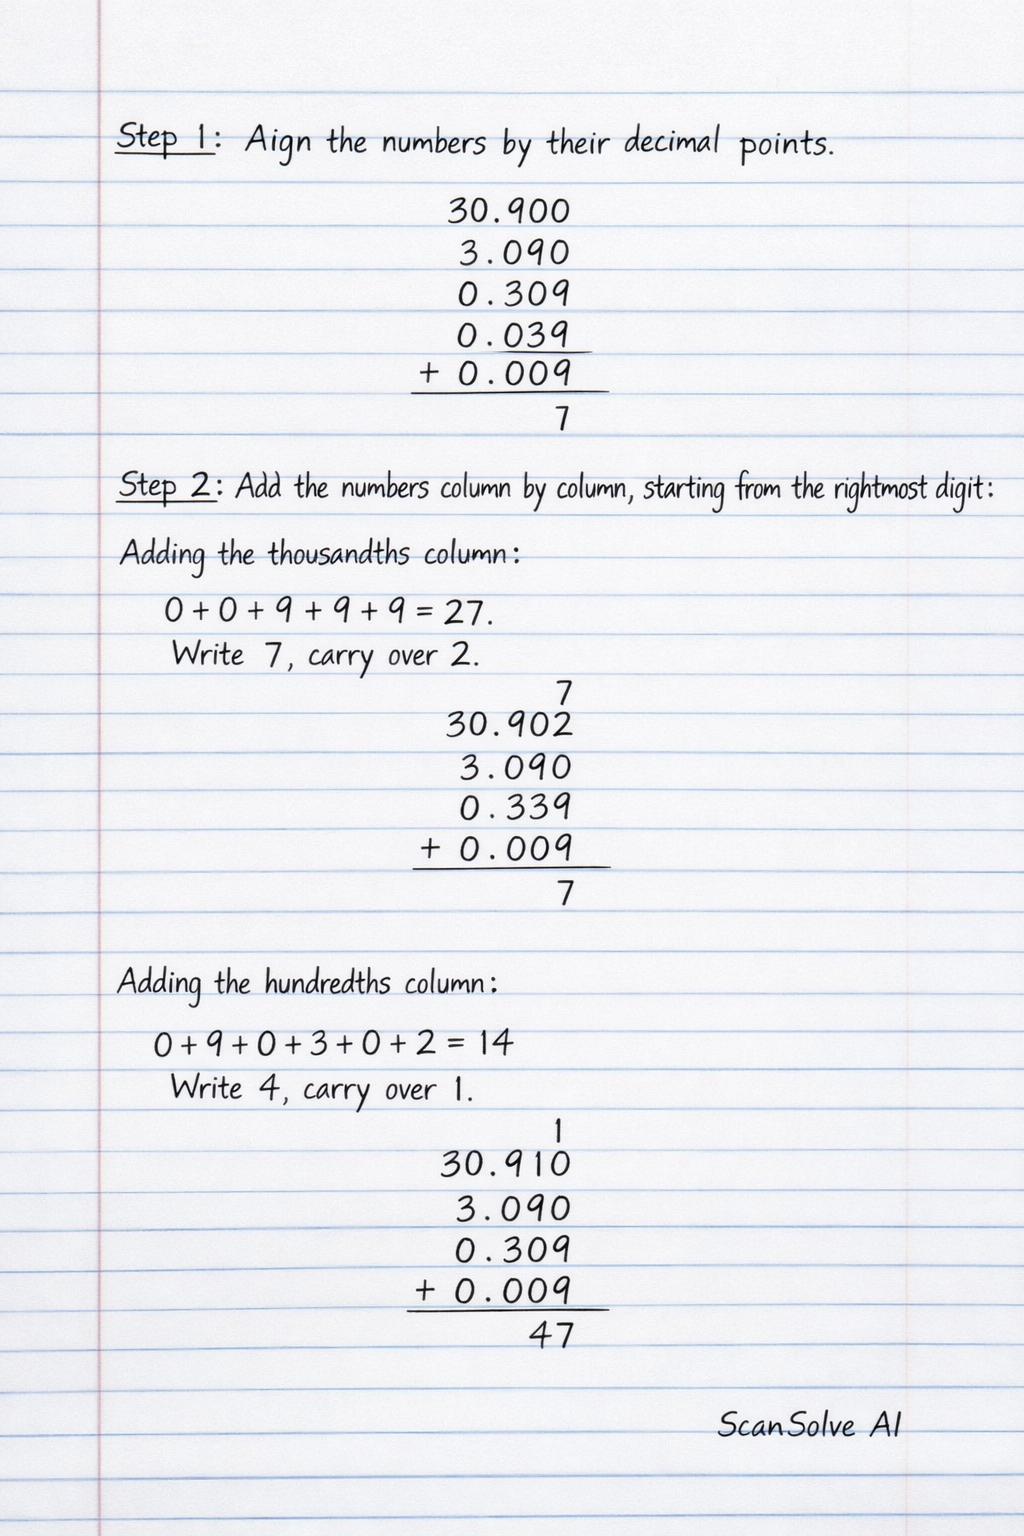 Step 1: Aign the numbers by their decimal points.
30.900
3.090
0.309
0.039
+ 0.009
7
Step 2: Add the numbers column by column, starting from the rightmost digit:
Adding the thousandths column:
0 + 0 + 9 + 9 + 9 = 27.
Write 7, carry over 2.
7
30.902
3.090
0.339
+ 0.009
7
Adding the hundredths column:
0 + 9 + 0 + 3 + 0 + 2 = 14
Write 4, carry over 1.
1
30.910
3.090
0.309
+ 0.009
47
ScanSolve AI